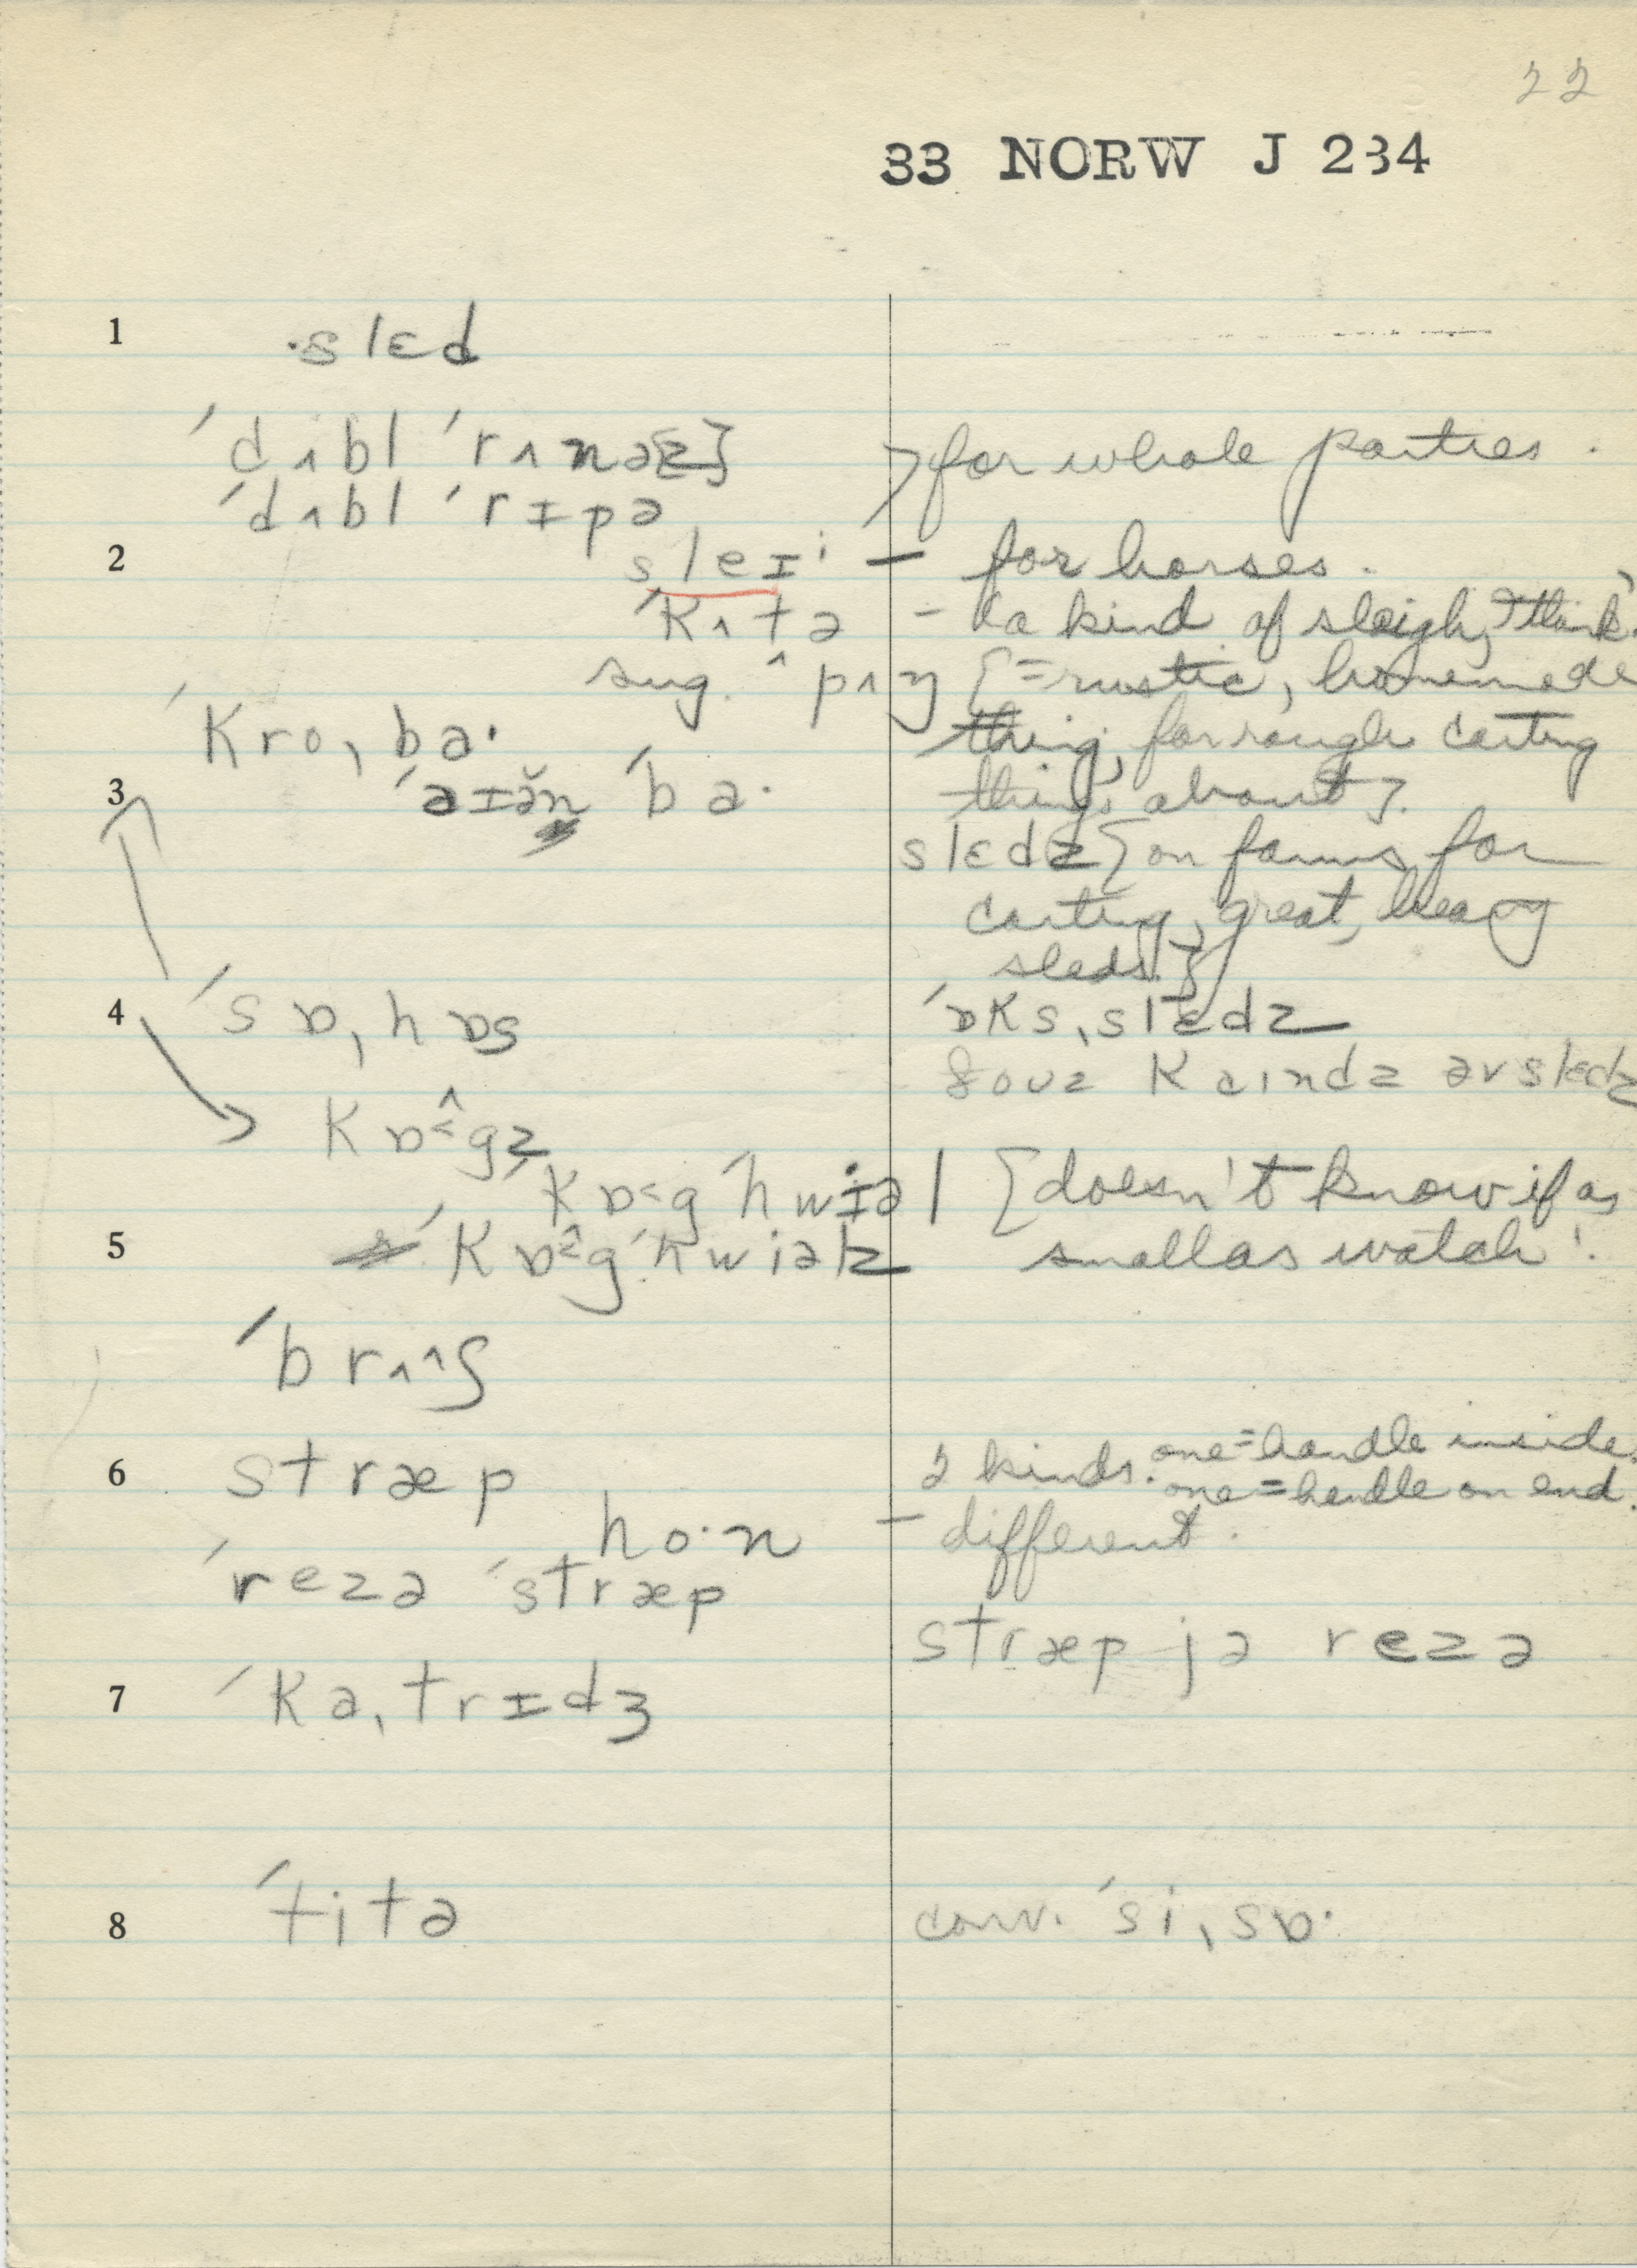 22
33 NORW J 234
1 slɛd
ˈdʌbl ˈrʌnə{z} > for whole parties.
ˈdʌbl ˈrɪpə
2 sleɪ – for horses.
ˈkʌtə – 'a kind of sleigh, I think'.
sug. pʌŋ {= rustic, homemade
ˈkroˌba· thing, for rough carting
3 ˈaɪən ˈba· things about}.
slɛdz {on farms for
carting, great, heavy
sleds.}
4 ˈsɒˌhɒs ˈɒksˌslɛdz
ðouz kaindz əv slɛdz
kɒ<^gz
ˈkɒ<g ˈhwɪəl {doesn't know if as
5 ˈkɒ<^g ˈhwiəlz small as watch'.
ˈbrʌ^ʃ
6 stræp 2 kinds. one = handle inside.
one = handle on end.
ho·n – different.
ˈrezə ˈstræp
stræp jə rezə
7 ˈkaˌtrɪdʒ
8 ˈtitə conv. ˈsiˌsɒ·